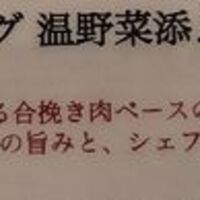 グ 温野菜添
る合挽き肉ベースの
の旨みと、シェフ